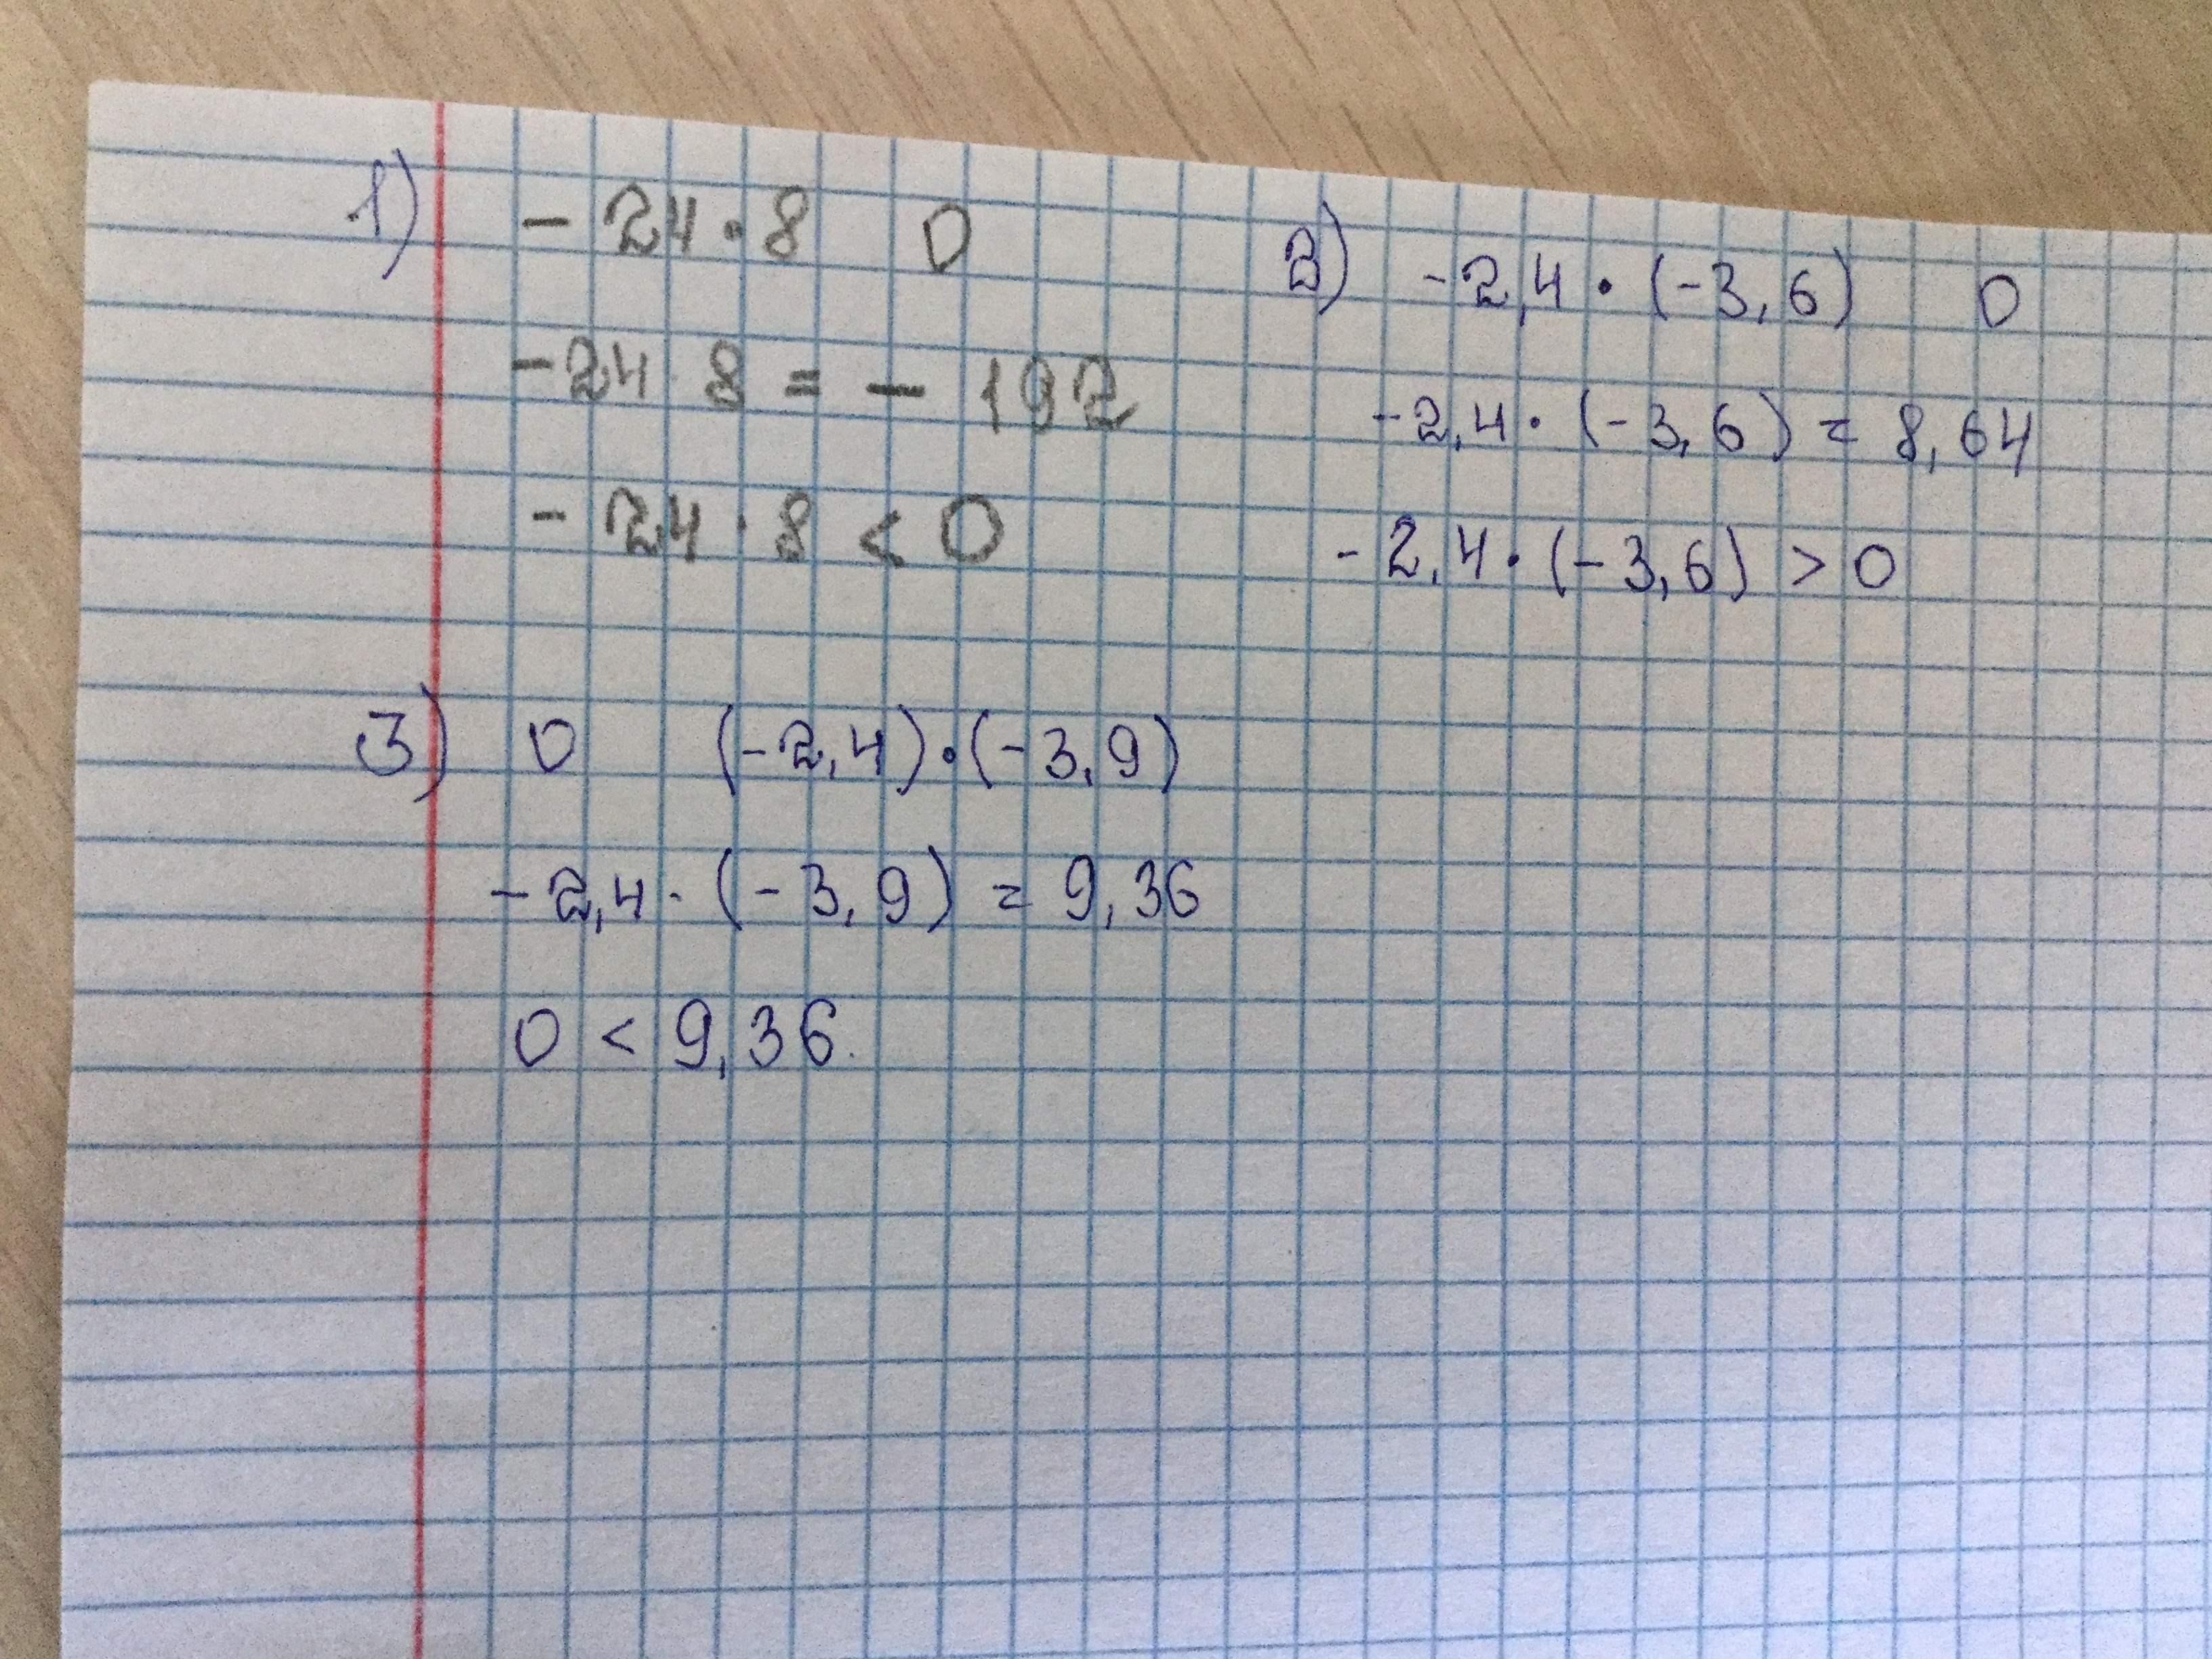 1) - 24 · 8 0
- 24 8 = - 192
- 24 · 8 < 0
2) -2,4 · (-3,6) 0
-2,4 · (-3,6) = 8,64
-2,4 · (-3,6) > 0
3) 0 (-2,4) · (-3,9)
-2,4 · (-3,9) = 9,36
0 < 9,36.